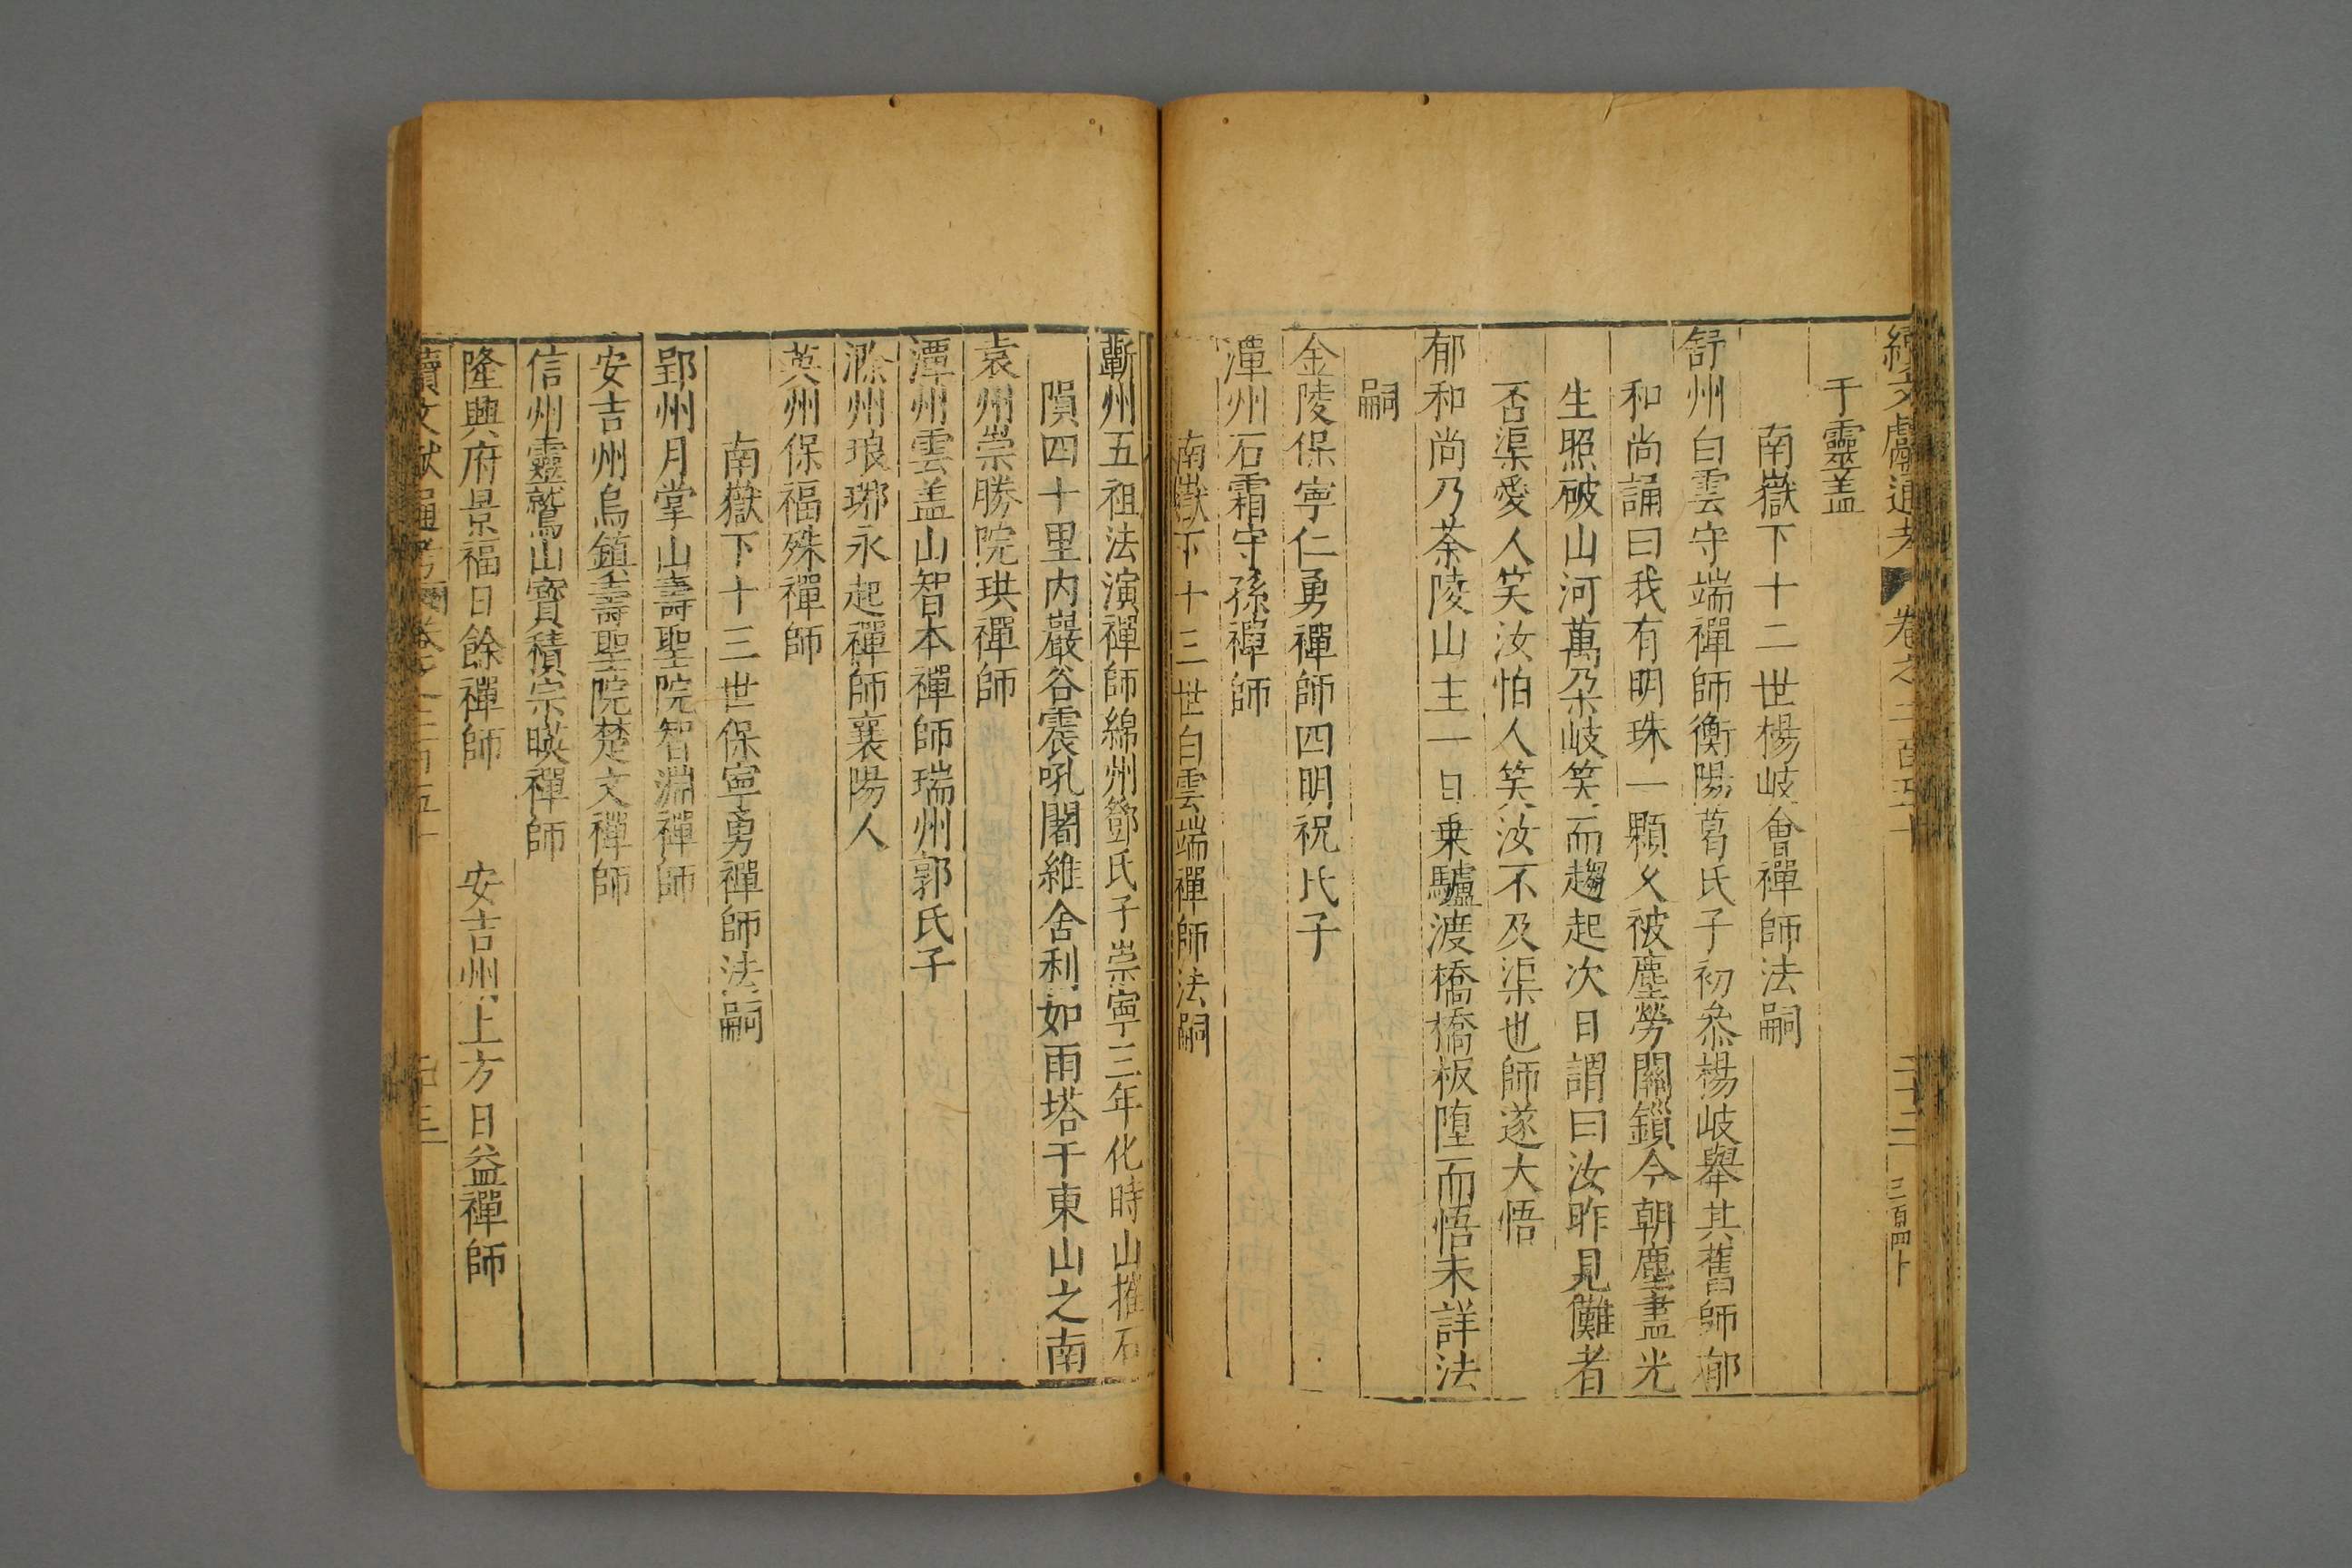 續文獻通考 卷之二百五十 二十二 三百四十
于靈盖
南嶽下十二世楊岐會禪師法嗣
舒州白雲守端禪師衡陽葛氏子初叅楊岐舉其舊師郁
和尚誦曰我有明珠一顆久被塵勞關鎖今朝塵盡光
生照破山河萬朶岐笑而趨起次日謂曰汝昨見儺者
否渠愛人笑汝怕人笑汝不及渠也師遂大悟
郁和尚乃荼陵山主一日乗驢渡橋橋板堕而悟未詳法
嗣
金陵保寧仁勇禪師四明祝氏子
潭州石霜守孫禪師
南嶽下十三世白雲端禪師法嗣
蘄州五祖法演禪師綿州鄧氏子崇寧三年化時山摧石
隕四十里内巖谷震吼闍維舍利如雨塔于東山之南
袁州崇勝院珙禪師
潭州雲盖山智本禪師瑞州郭氏子
滁州琅琊永起禪師襄陽人
英州保福殊禪師
南嶽下十三世保寧勇禪師法嗣
郢州月掌山壽聖院智淵禪師
安吉州烏鎮壽聖院楚文禪師
信州靈鷲山寶積宗映禪師
隆興府景福日餘禪師 安吉州上方日益禪師
續文獻通考 卷之二百五十